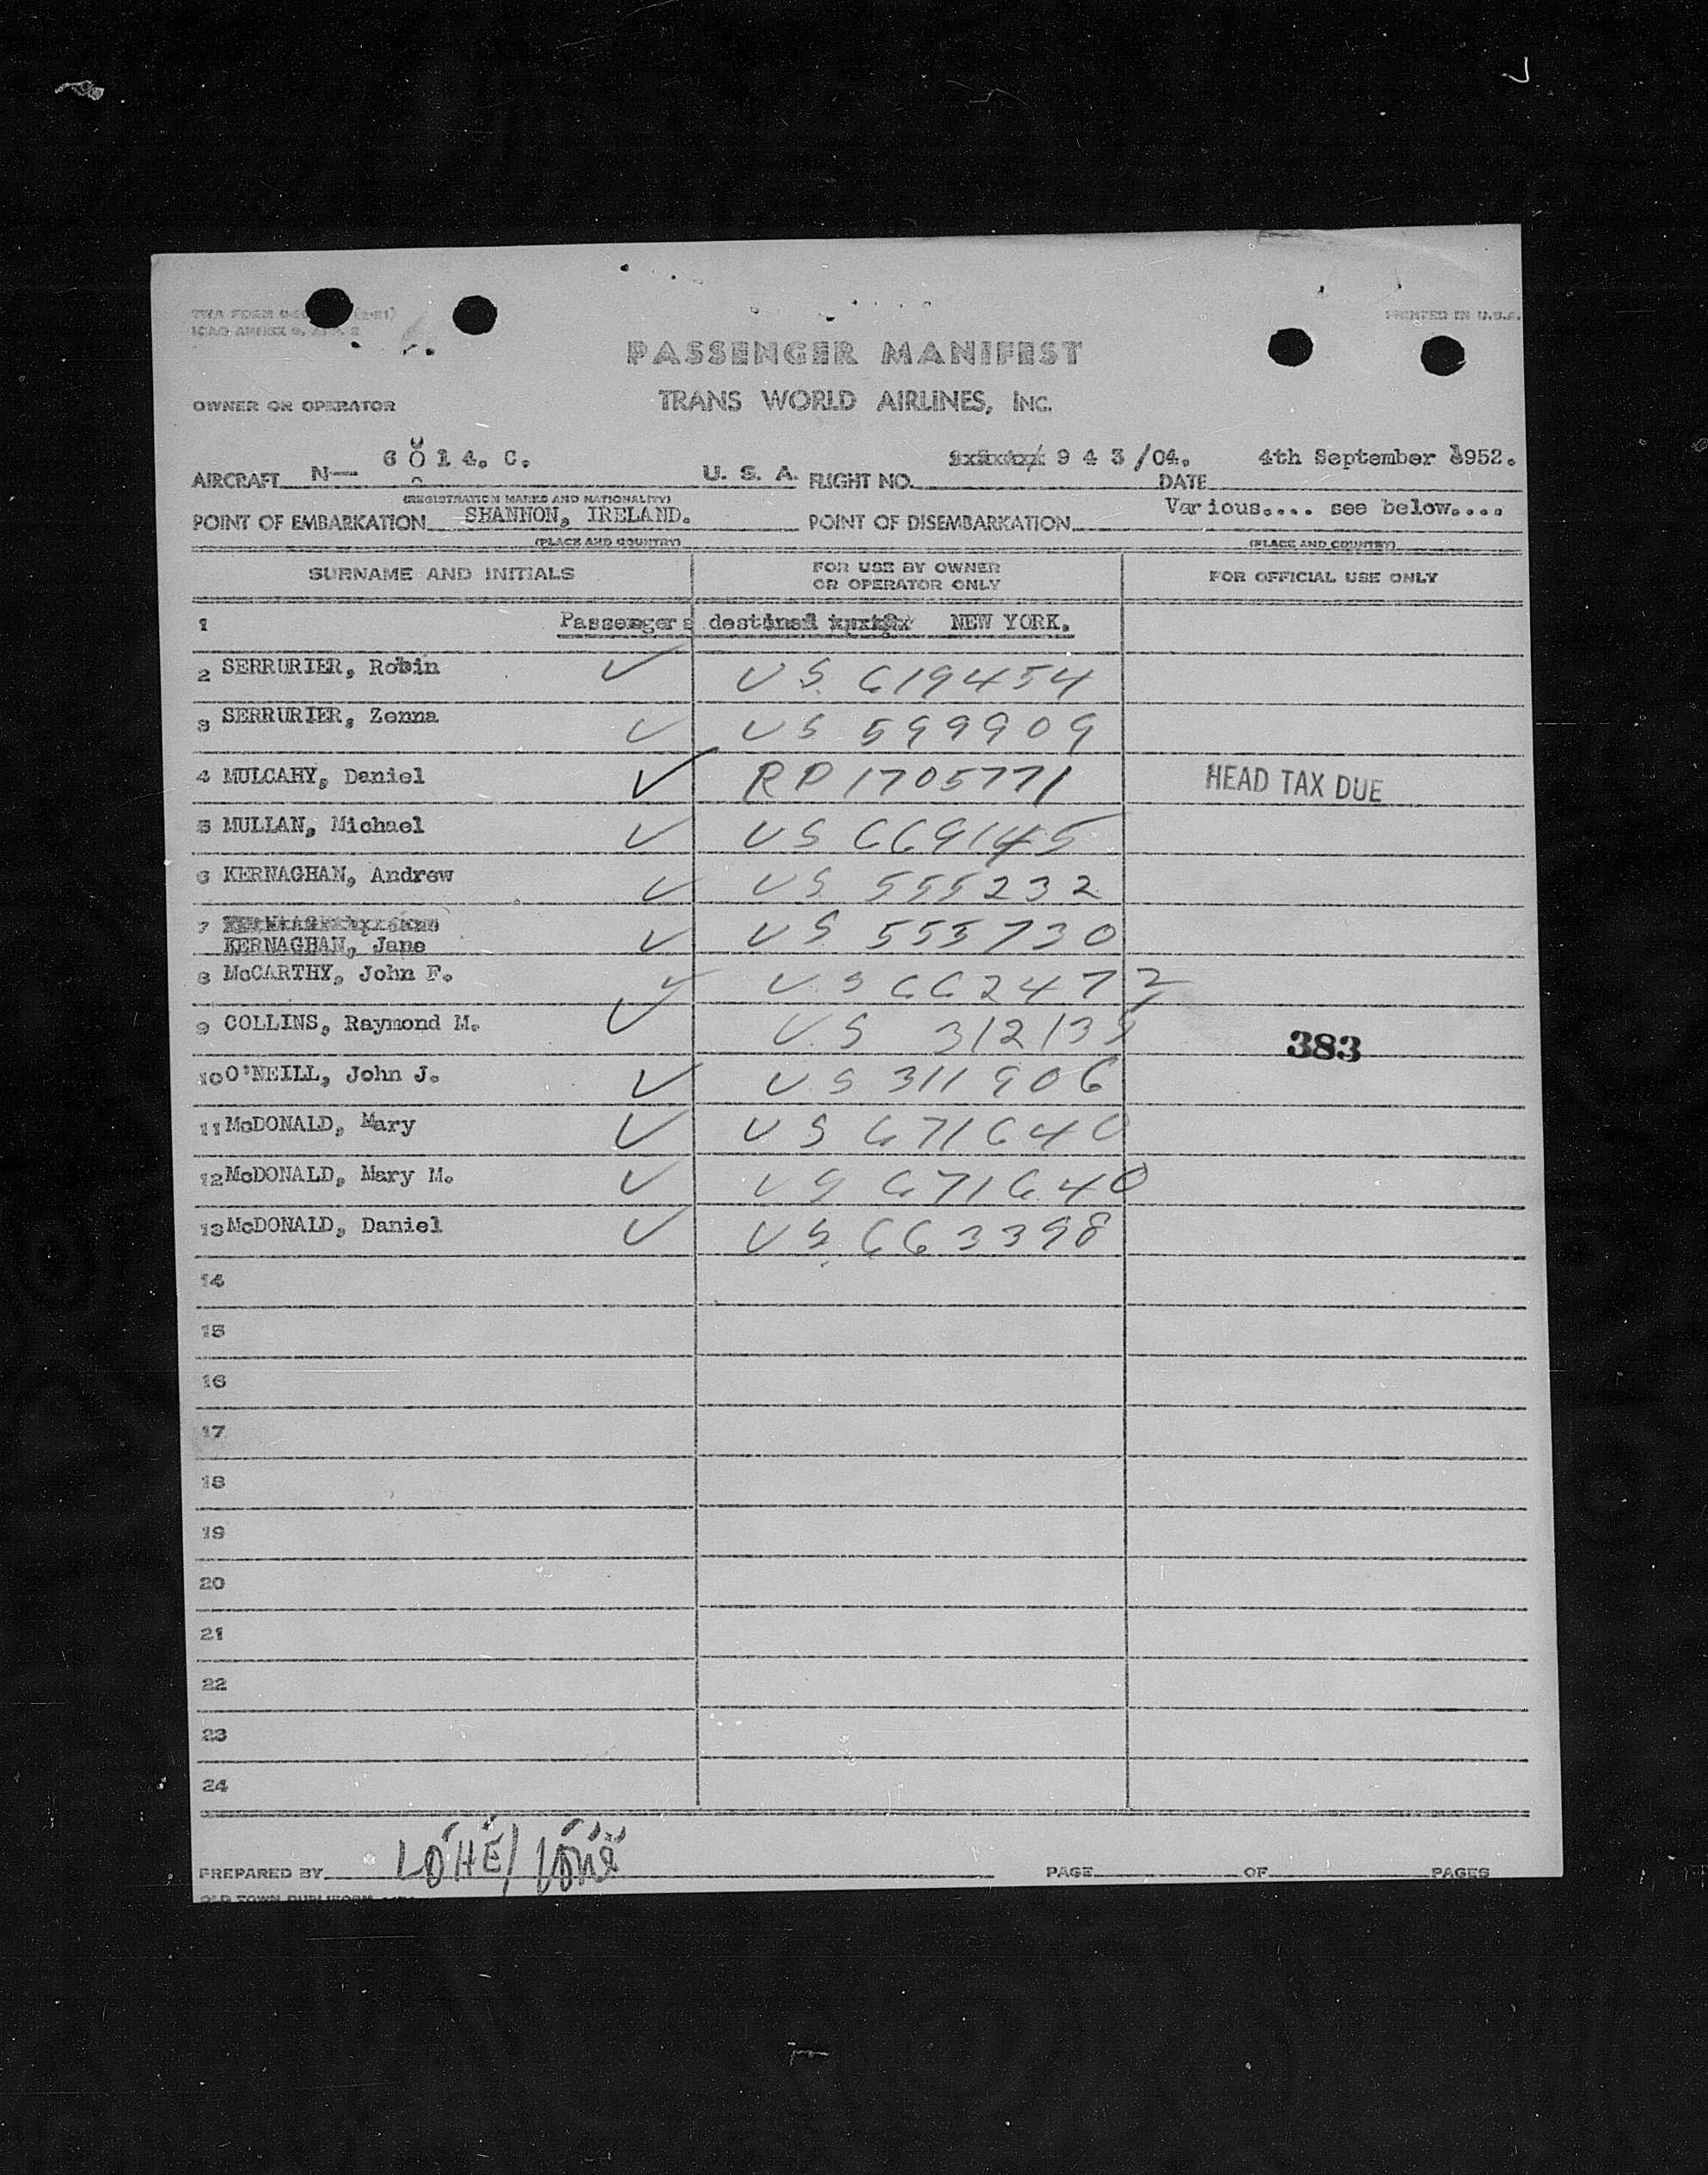 TWA FORM (2-51)
PRINTED IN U.S.A.
ICAO ANNEX 9,
PASSENGER MANIFEST
OWNER OR OPERATOR TRANS WORLD AIRLINES, INC.
AIRCRAFT N— 6 0 1 4. C. U. S. A. FLIGHT NO. 9 4 3 /04. DATE 4th September 1952.
(REGISTRATION MARKS AND NATIONALITY)
POINT OF EMBARKATION SHANNON, IRELAND. POINT OF DISEMBARKATION Various.... see below....
(PLACE AND COUNTRY) (PLACE AND COUNTRY)
SURNAME AND INITIALS FOR USE BY OWNER OR OPERATOR ONLY FOR OFFICIAL USE ONLY
1 Passengers destined NEW YORK.
2 SERRURIER, Robin ✓ US 619454
3 SERRURIER, Zenna ✓ US 599909
4 MULCAHY, Daniel ✓ RP 1705771 HEAD TAX DUE
5 MULLAN, Michael ✓ US 669145
6 KERNAGHAN, Andrew ✓ US 555232
7 KERNAGHAN, Jane ✓ US 555730
8 McCARTHY, John F. ✓ US 662472
9 COLLINS, Raymond M. ✓ US 312139 383
10 O'NEILL, John J. ✓ US 311906
11 McDONALD, Mary ✓ US 671640
12 McDONALD, Mary M. ✓ US 671640
13 McDONALD, Daniel ✓ US 663398
14
15
16
17
18
19
20
21
22
23
24
PREPARED BY PAGE OF PAGES